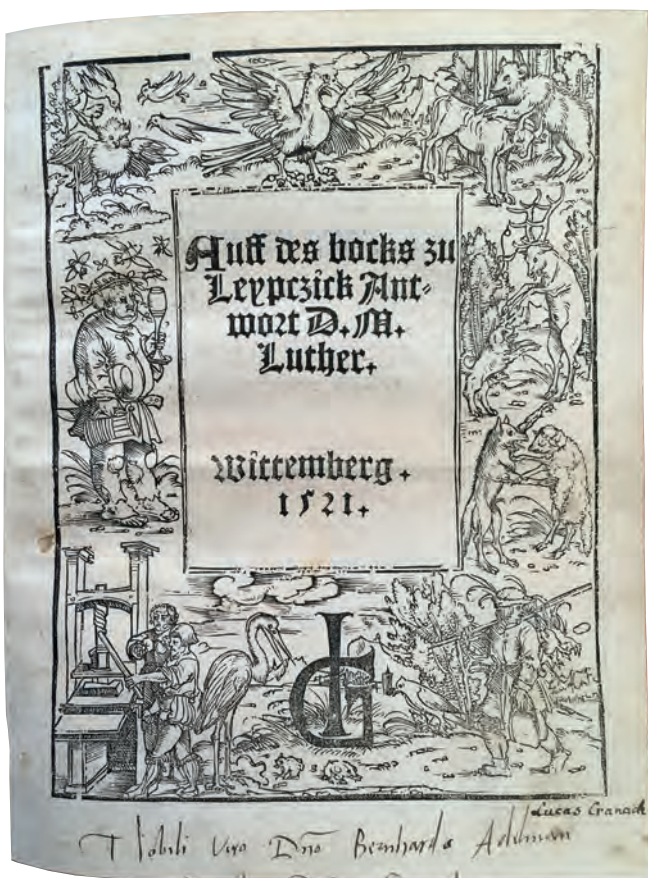 Auff des bocks zu
Leypczick Ant⸗
wort D. M.
Luther.
Wittemberg.
1521.
IG
Lucas Cranach
Nobili Viro Dno Bernhardo Adelman